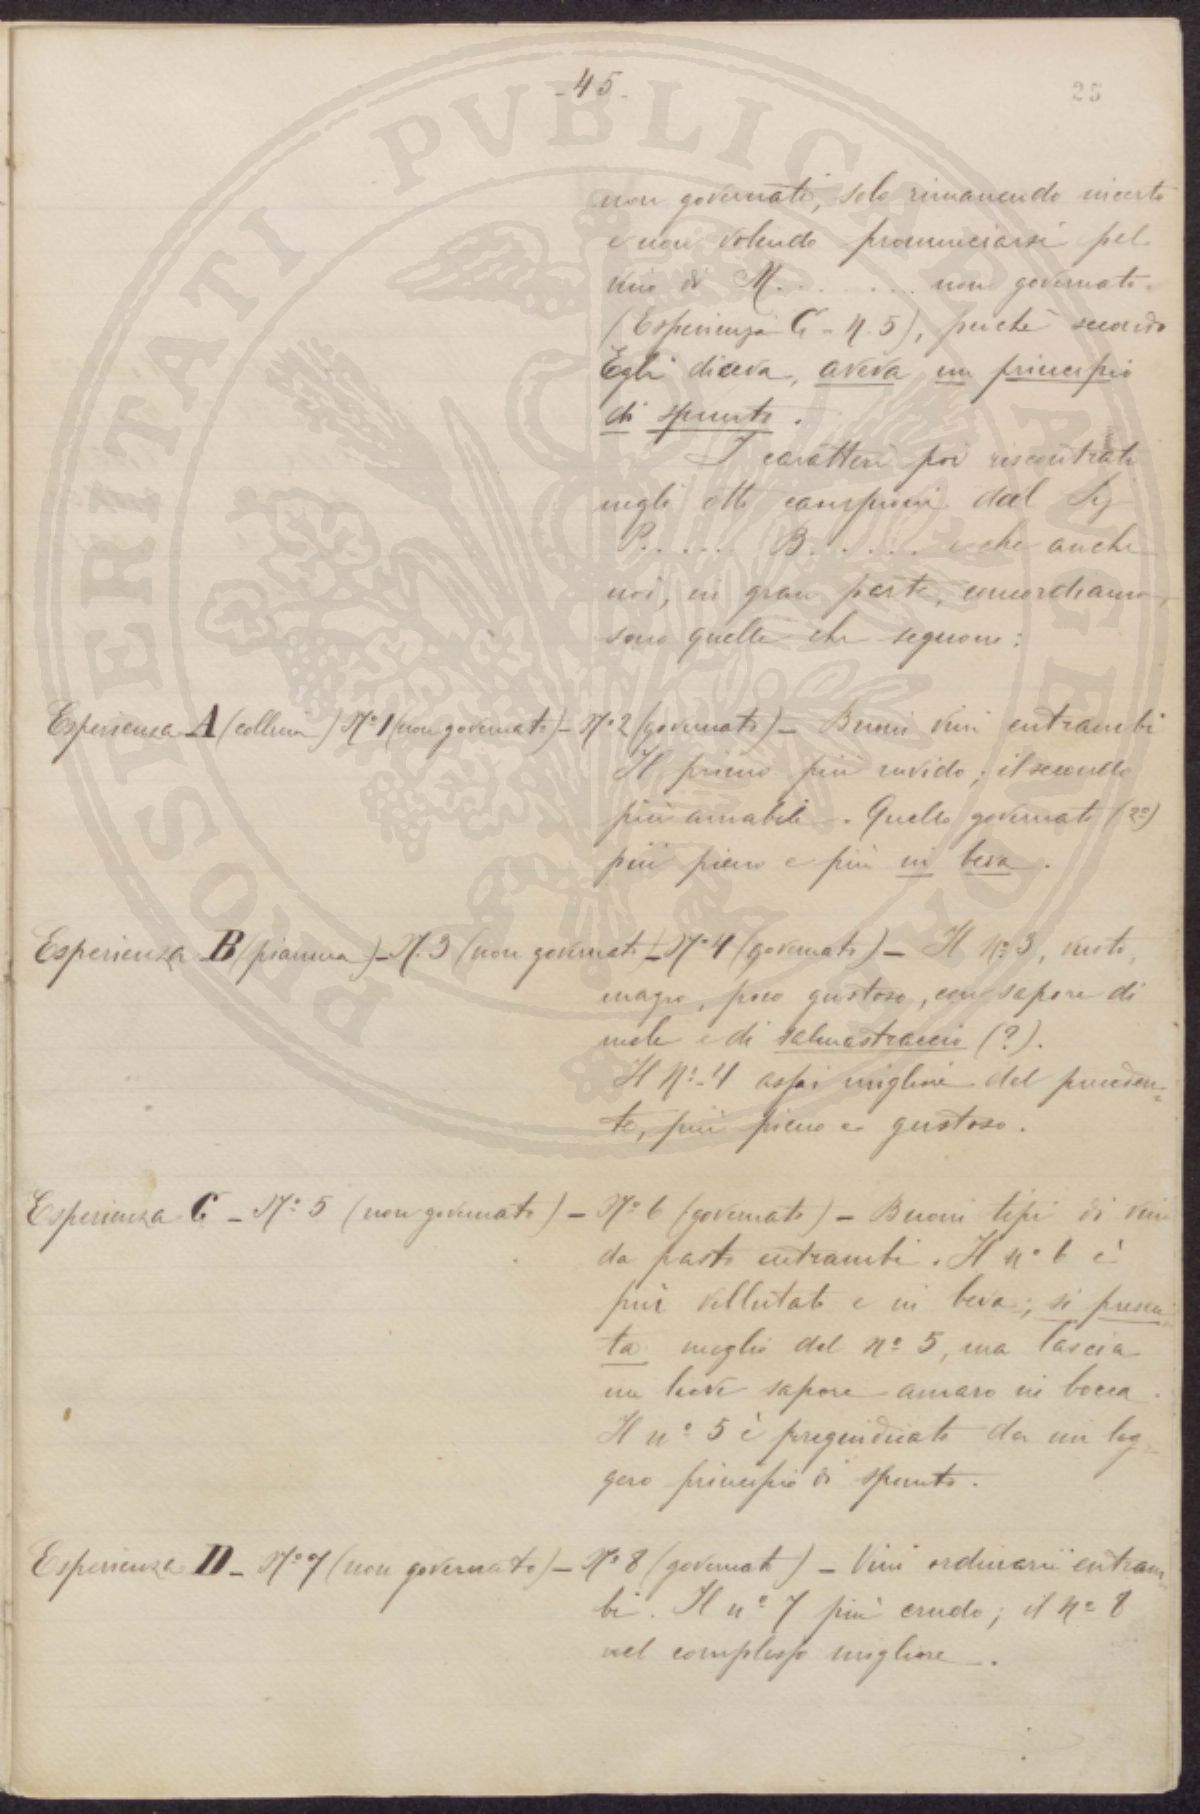 - 45 -
25
non governati, solo rimanendo incerto
e non volendo pronunciarsi pel
vino di M........ non governato.
(Esperienza C - n. 5), perchè secondo
Egli diceva, aveva un principio
di spunto.
I caratteri poi riscontrati
negli otto campioni dal Sig
P..... B...... e che anche
noi, in gran parte, concordiamo,
sono quelli che seguono:
Esperienza A (collina) Nº 1 (non governato) - Nº 2 (governato) - Buoni vini entrambi
Il primo più ruvido; il secondo
più amabile. Quello governato (2º)
più pieno e più in beva.
Esperienza B (pianura) - N. 3 (non governato) - Nº 4 (governato) - Il nº 3,
magro, poco gustoso, con sapore di
e di salmastraccio (?).
Il Nº 4 assai migliore del preceden=
te, più pieno e gustoso.
Esperienza C - Nº 5 (non governato) - Nº 6 (governato) - Buoni tipi di vini
da pasto entrambi. Il nº 6 è
più vellutato e in beva; si presen=
ta meglio del nº 5, ma lascia
un lieve sapore amaro in bocca.
Il nº 5 è pregiudicato da un leg=
gero principio di spunto.
Esperienza D - Nº 7 (non governato) - Nº 8 (governato) - Vini ordinarii entram=
bi. Il nº 7 più crudo; il nº 8
nel complesso migliore.
PROSPERITATI PVBLICAE AVGENDAE